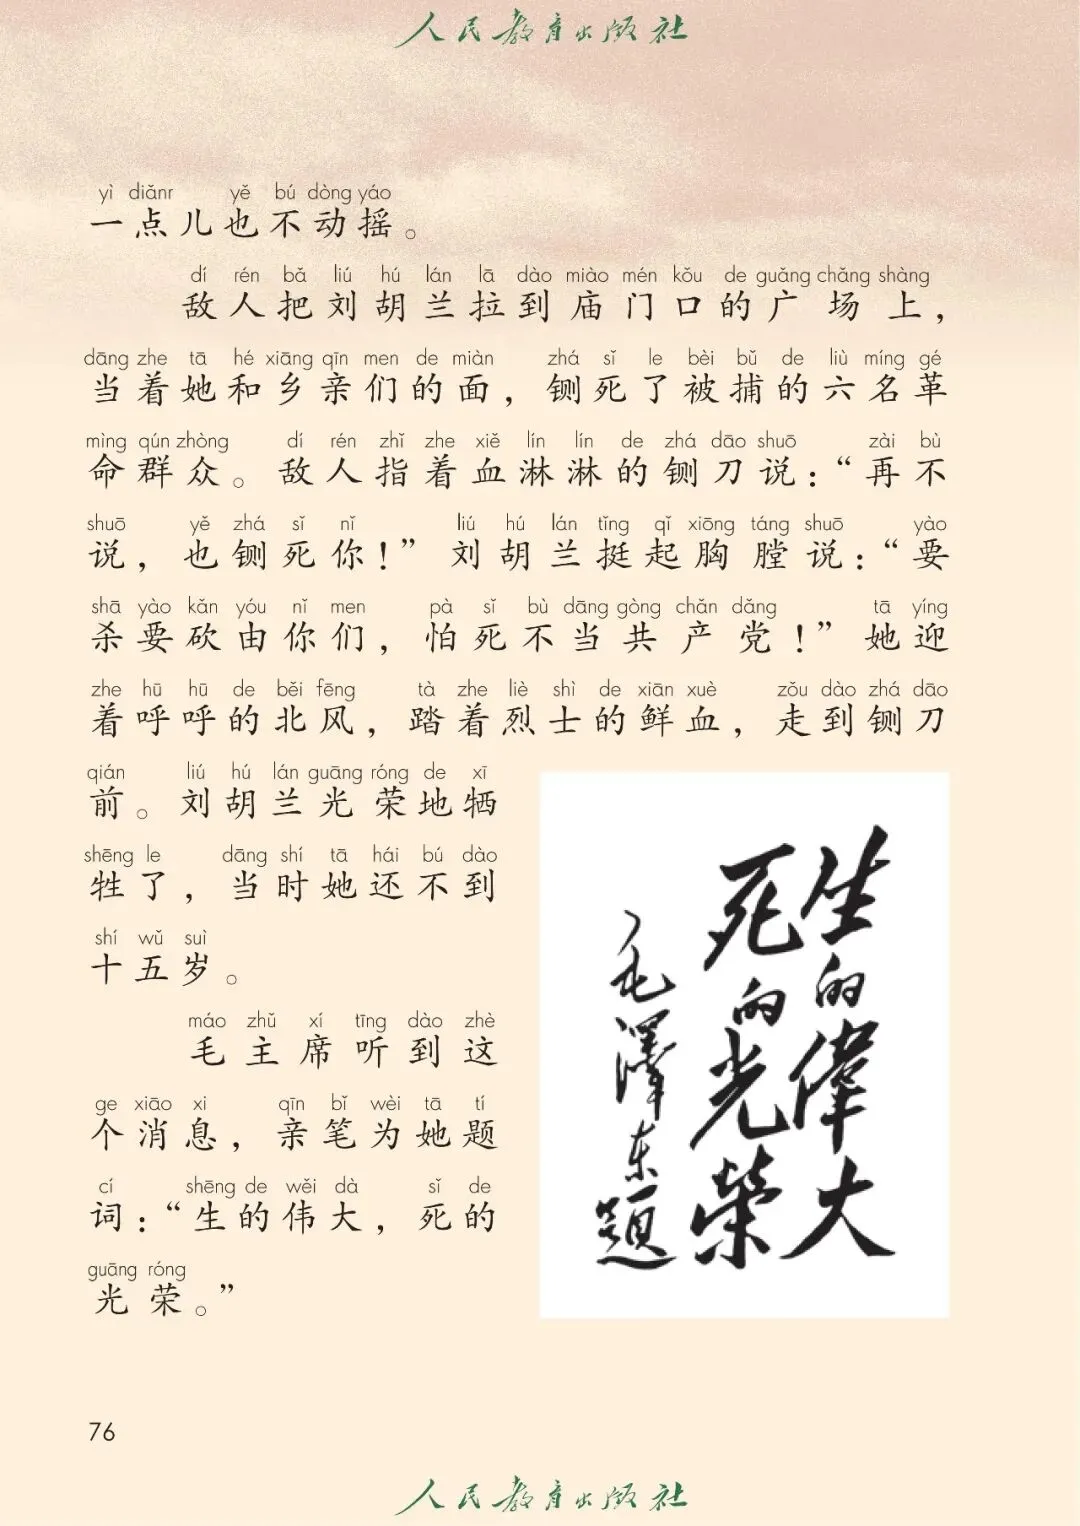 人民教育出版社
yì diǎnr yě bú dòng yáo
一点儿也不动摇。
dí rén bǎ liú hú lán lā dào miào mén kǒu de guǎng chǎng shàng
敌人把刘胡兰拉到庙门口的广场上，
dāng zhe tā hé xiāng qīn men de miàn zhá sǐ le bèi bǔ de liù míng gé
当着她和乡亲们的面，铡死了被捕的六名革
mìng qún zhòng dí rén zhǐ zhe xiě lín lín de zhá dāo shuō zài bù
命群众。敌人指着血淋淋的铡刀说：“再不
shuō yě zhá sǐ nǐ liú hú lán tǐng qǐ xiōng táng shuō yào
说，也铡死你！”刘胡兰挺起胸膛说：“要
shā yào kǎn yóu nǐ men pà sǐ bù dāng gòng chǎn dǎng tā yíng
杀要砍由你们，怕死不当共产党！”她迎
zhe hū hū de běi fēng tà zhe liè shì de xiān xuè zǒu dào zhá dāo
着呼呼的北风，踏着烈士的鲜血，走到铡刀
qián liú hú lán guāng róng de xī
前。刘胡兰光荣地牺
shēng le dāng shí tā hái bú dào
牲了，当时她还不到
shí wǔ suì
十五岁。
máo zhǔ xí tīng dào zhè
毛主席听到这
ge xiāo xi qīn bǐ wèi tā tí
个消息，亲笔为她题
cí shēng de wěi dà sǐ de
词：“生的伟大，死的
guāng róng
光荣。”
生的偉大
死的光榮
毛澤东题
76
人民教育出版社